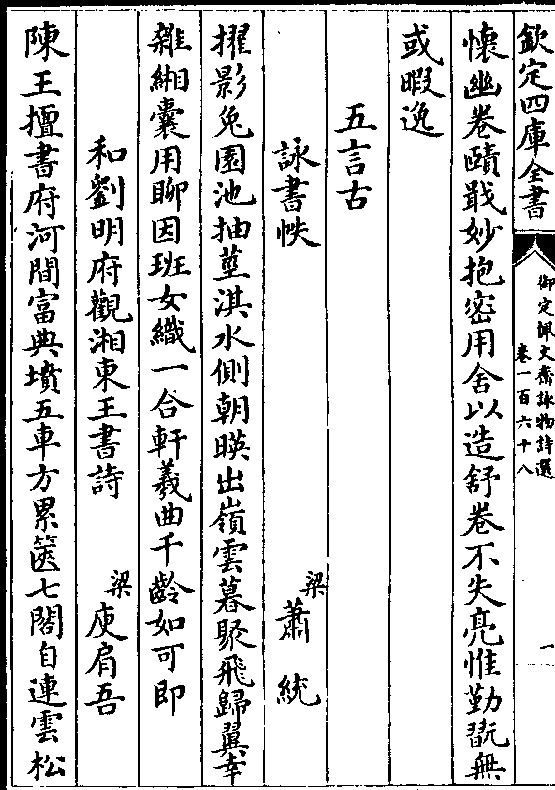 欽定四庫全書
御定佩文齋詠物詩選
卷一百六十八
一
懷幽卷賾戢妙抱密用舍以造舒卷不失亮惟勤翫無
或暇逸
五言古
詠書帙
梁
蕭統
擢影兔園池抽莖淇水側朝映出嶺雲暮聚飛歸翼幸
雜緗囊用聊因班女織一合軒羲曲千齡如可即
和劉明府觀湘東王書詩
梁
庾肩吾
陳王擅書府河間富典墳五車方累篋七閣自連雲松